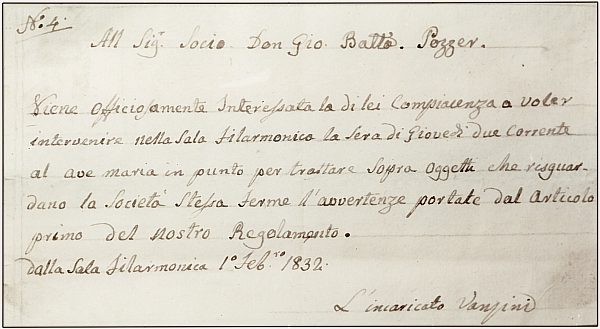 N.º 4.
All Sig.r Socio Don Gio. Batta. Pozzer.
Viene Officiosamente Interessata la di lei Compiacenza a voler
intervenire nella Sala Filarmonica la Sera di Giovedì due Corrente
al ave maria in punto per trattare Sopra Oggetti che risguar-
dano la Società Stessa ferme l'avvertenze portate dal Articolo
primo del nostro Regolamento.
dalla Sala Filarmonica 1º Feb.ro 1832.
L'incaricato Vansini